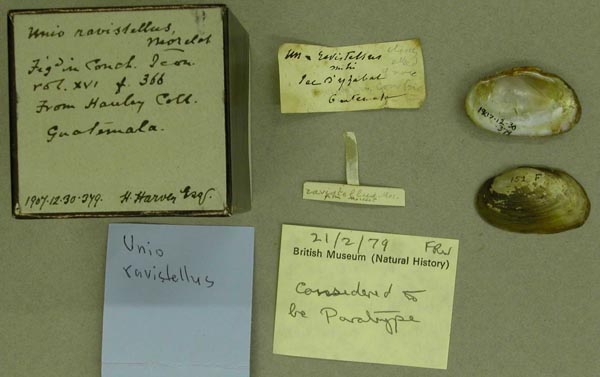 Unio ravistellus,
Morelet
Fig'd in Conch. Icon.
vol. XVI f. 366
From Hanley Coll.
Guatemala.
1907.12.30.379. H. Harvey Esq.
Un. ravistellus
mihi
Lac d'yzabal
Guatemala
ravistellus, Mor.
1907.12.30
379
152 F
Unio
ravistellus
21/2/79 FRW
British Museum (Natural History)
Considered to
be Paratype